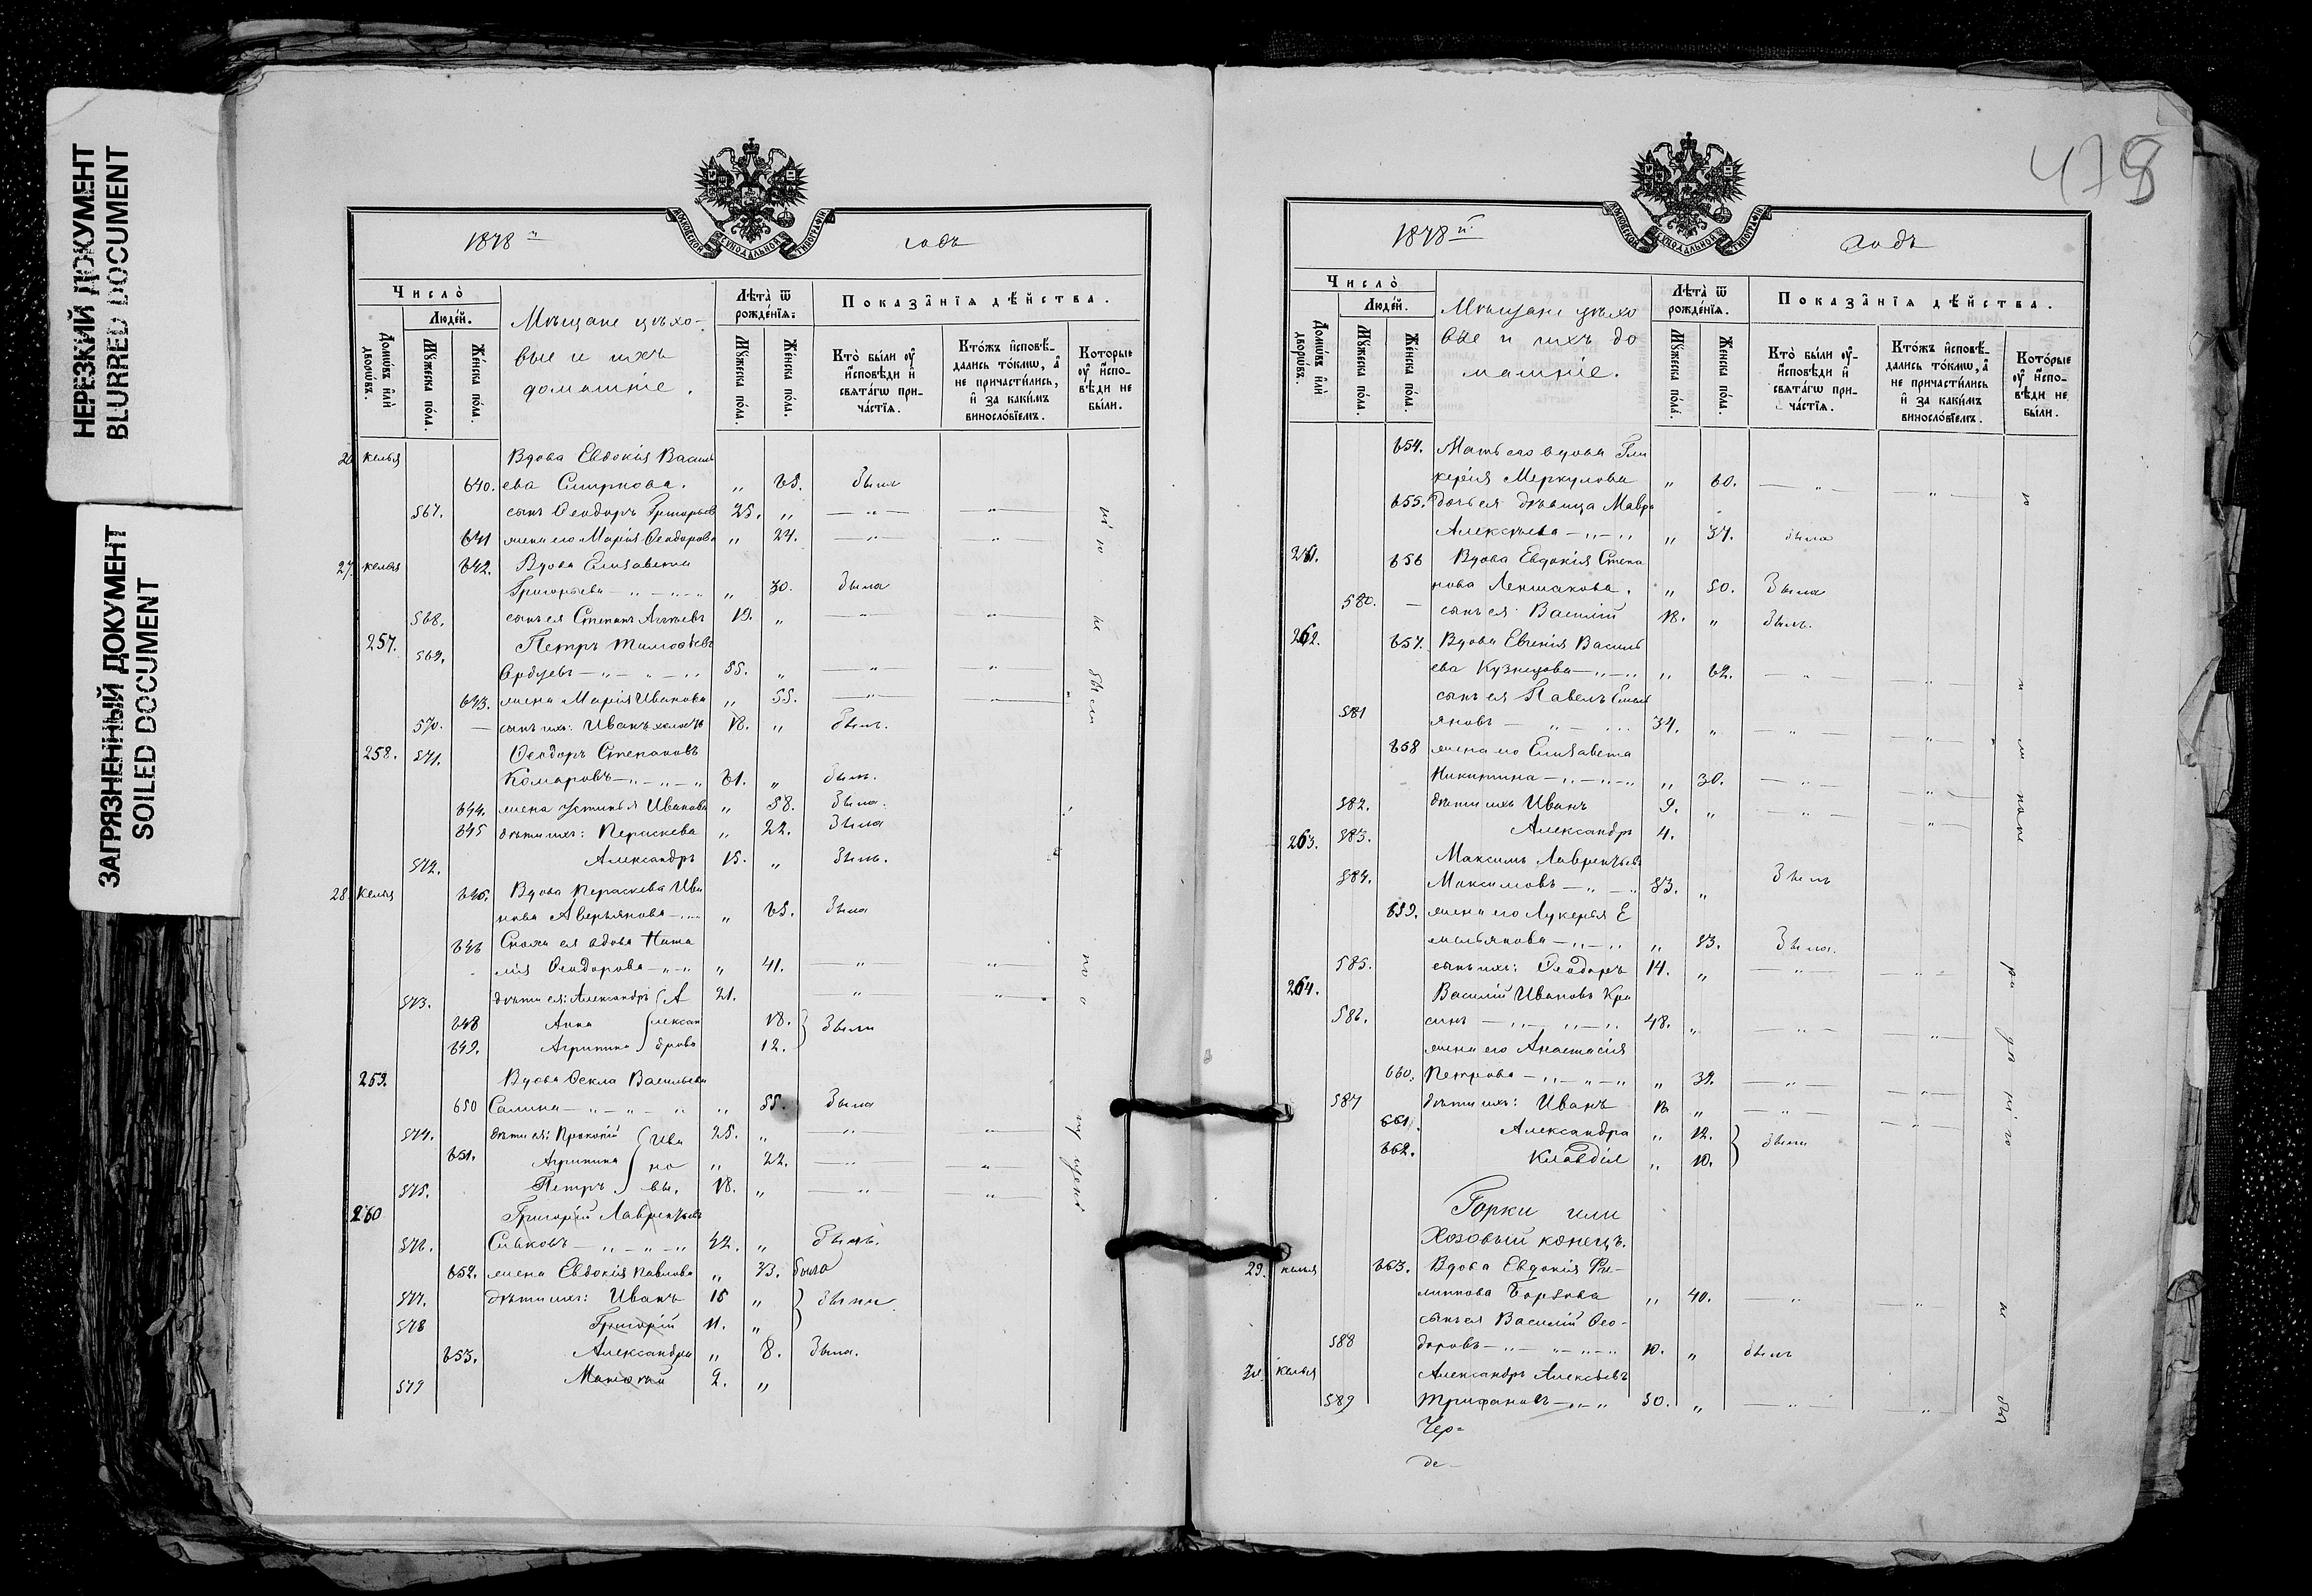 НЕРЕЗКИЙ ДОКУМЕНТ
BLURRED DOCUMENT
ЗАГРЯЗНЕННЫЙ ДОКУМЕНТ
SOILED DOCUMENT
МОСКОВСКОЙ СУНОДАЛЬНОЙ ТИПОГРАФІИ
1878 годъ
Число̀
Людей.
Домѡвъ и҆лѝ дворѡвъ.
Мꙋжеска пола.
Женска пола.
Мѣщане цѣхо-
вые и ихъ
домашніе.
Лѣта̀ ѿ рожденїѧ:
Мꙋжеска пола.
Женска пола.
Показанїѧ дѣйства.
Кто̀ были оу҆ и҆сповѣди и҆ свѧтагѡ причастїѧ.
Ктожъ и҆сповѣдались токмѡ, а҆ не причастились, и҆ за какимъ винословїемъ.
Которые оу҆ и҆сповѣди не были.
26 келья Вдова Евдокія Василь
640. ева Смирнова. „ 65. была
567. сынъ Ѳеодоръ Григорьев 25. „
641 жена его Марія Ѳеодорова „ 24.
27. келья 642. Вдова Елизавета
Григорьева „ 30. была
568. сынъ ея Степанъ 19. „
257. 569. Петръ Тимоѳеевъ
55. „
643. жена Марія Иванова „ 55.
570. сынъ ихъ: Иванъ холостъ 18. „ былъ.
258. 571. Ѳеодоръ Степановъ
Комаровъ 61. „ былъ.
644. жена Устинья Иванова „ 58. была.
645 дѣти ихъ: Параскева „ 22. была
572. Александръ 15. „ былъ.
28. келья 646. Вдова Параскева Ива
нова Аверьянова „ 65. была
646 Сноха ея вдова Ната
лія Ѳеодорова „ 41.
573. дѣти ея: Александръ (А 21.
648 Анна лексан 18. были
649. Агрипина дровы 12.
259. Вдова Ѳекла Васильева
650 Салина „ 55. была
574. дѣти ея: Прокопій (Ива 25. „
651. Агрипина но „ 22.
575. Петръ вы. 18. „
260 Григорій Лаврентьевъ
576. Сиваковъ 42. „ былъ.
652. жена Евдокія Павлова „ 33. была
577. дѣти ихъ: Иванъ 15 „ были
578 Григорій 11. „
653. Александра „ 8. была.
579 2. „
478
1878й Годъ
МОСКОВСКОЙ СУНОДАЛЬНОЙ ТИПОГРАФІИ
Число̀
Людей.
Домѡвъ и҆лѝ дворѡвъ.
Мꙋжеска пола.
Женска пола.
Мѣщане цѣхо
вые и ихъ до
машніе.
Лѣта̀ ѿ рожденїѧ.
Мꙋжеска пола.
Женска пола.
Показанїѧ дѣйства.
Кто̀ были оу҆ и҆сповѣди и҆ свѧтагѡ причастїѧ.
Ктожъ и҆сповѣдались токмѡ, а҆ не причастились и҆ за какимъ винословїемъ.
Которые оу҆ и҆сповѣди не были.
654. Мать его вдова Гли
керія Меркулова „ 60.
655. дочь ея дѣвица Мавра
Алексѣева „ 37. была
261. 656 Вдова Евдокія Степа
нова Леншакова. „ 50. была
580. сынъ ея: Василій 18. „ былъ.
262. 657. Вдова Евгенія Василь
ева Кузнецова „ 62.
сынъ ея Павелъ Емель
581 яновъ 34. „
658 жена его Елизавета
Никитина „ 30.
582. дѣти ихъ Иванъ 9. „
263. 583. Александръ 4.
Максимъ Лаврентьевъ
584. Максимовъ 53. „ былъ
659. жена его Лукерья Е
мельянова „ 53. была.
585. сынъ ихъ: Ѳеодоръ 14. „
264. Василій Ивановъ Кра
586. синъ 48. „
жена его Анастасія
660. Петрова „ 39.
587 дѣти ихъ: Иванъ 18 „
661. Александра „ 12. были
662. Клавдія „ 10.
Горки или
Хозовый конецъ.
29. келья 663. Вдова Евдокія Фи-
липпова Борзова „ 40.
сынъ ея Василій Ѳео-
588 доровъ 10. „ былъ
30. келья Александръ Алексѣевъ
589 Трифановъ 50. „
Чер=
де-